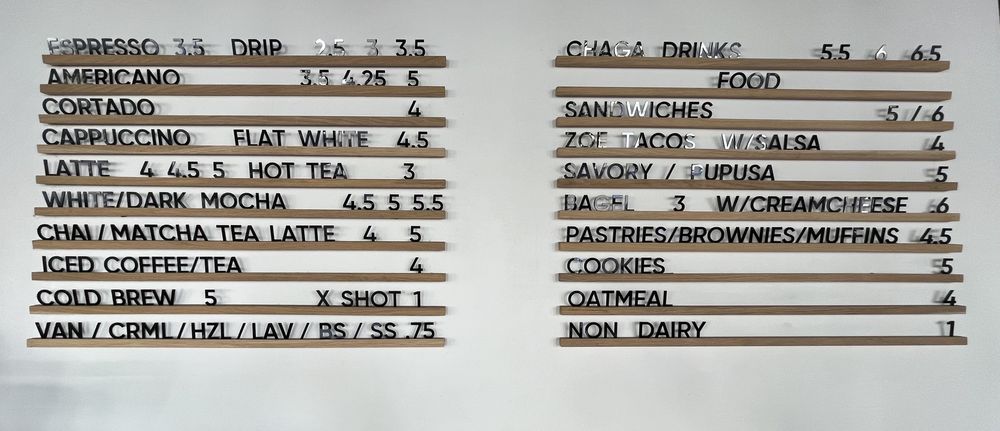 ESPRESSO 3.5 DRIP 2.5 3 3.5
AMERICANO 3.5 4.25 5
CORTADO 4
CAPPUCCINO FLAT WHITE 4.5
LATTE 4 4.5 5 HOT TEA 3
WHITE/DARK MOCHA 4.5 5 5.5
CHAI/MATCHA TEA LATTE 4 5
ICED COFFEE/TEA 4
COLD BREW 5 X SHOT 1
VAN / CRML/HZL/LAV/ BS / SS .75
CHAGA DRINKS 5.5 6 6.5
FOOD
SANDWICHES 5 / 6
ZOE TACOS W/SALSA 4
SAVORY / PUPUSA 5
BAGEL 3 W/CREAMCHEESE 6
PASTRIES/BROWNIES/MUFFINS 4.5
COOKIES 5
OATMEAL 4
NON DAIRY 1